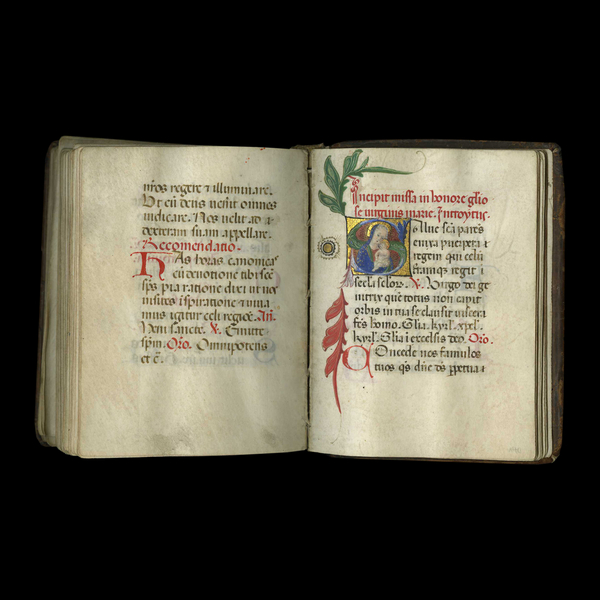 nr̄os regere ⁊ illuminare.
Ut cū deus uenit omnes
iudicare. Nos uelit ad a
dexteram suam appellare.
Recomendatio.
HAs horas canonicas
cū deuotione tibi scē
sp̄s pia ratione dixi ut nos
uisites īspiratione ⁊ uiua
mus igitur celi regiōe. An̄.
Veni sancte. ℣. Emitte
sp̄m. Oro. Omnipotens
et c̄.
Incipit missa in honore glīo
se uirginis marie. Introytus.
Salue scā parēs
enixa puerpera
regem qui celū
terramqȝ regit ī
secla sclor. ℣. Virgo dei ge
nitrix que totus non capit
orbis in tua se clausit uiscera
fcūs homo. Glīa. kyrī. xpel.
kyrī. Glīa ī excelsis deo. Oro.
COncede nos famulos
tuos qs dn̄e ds ppetua